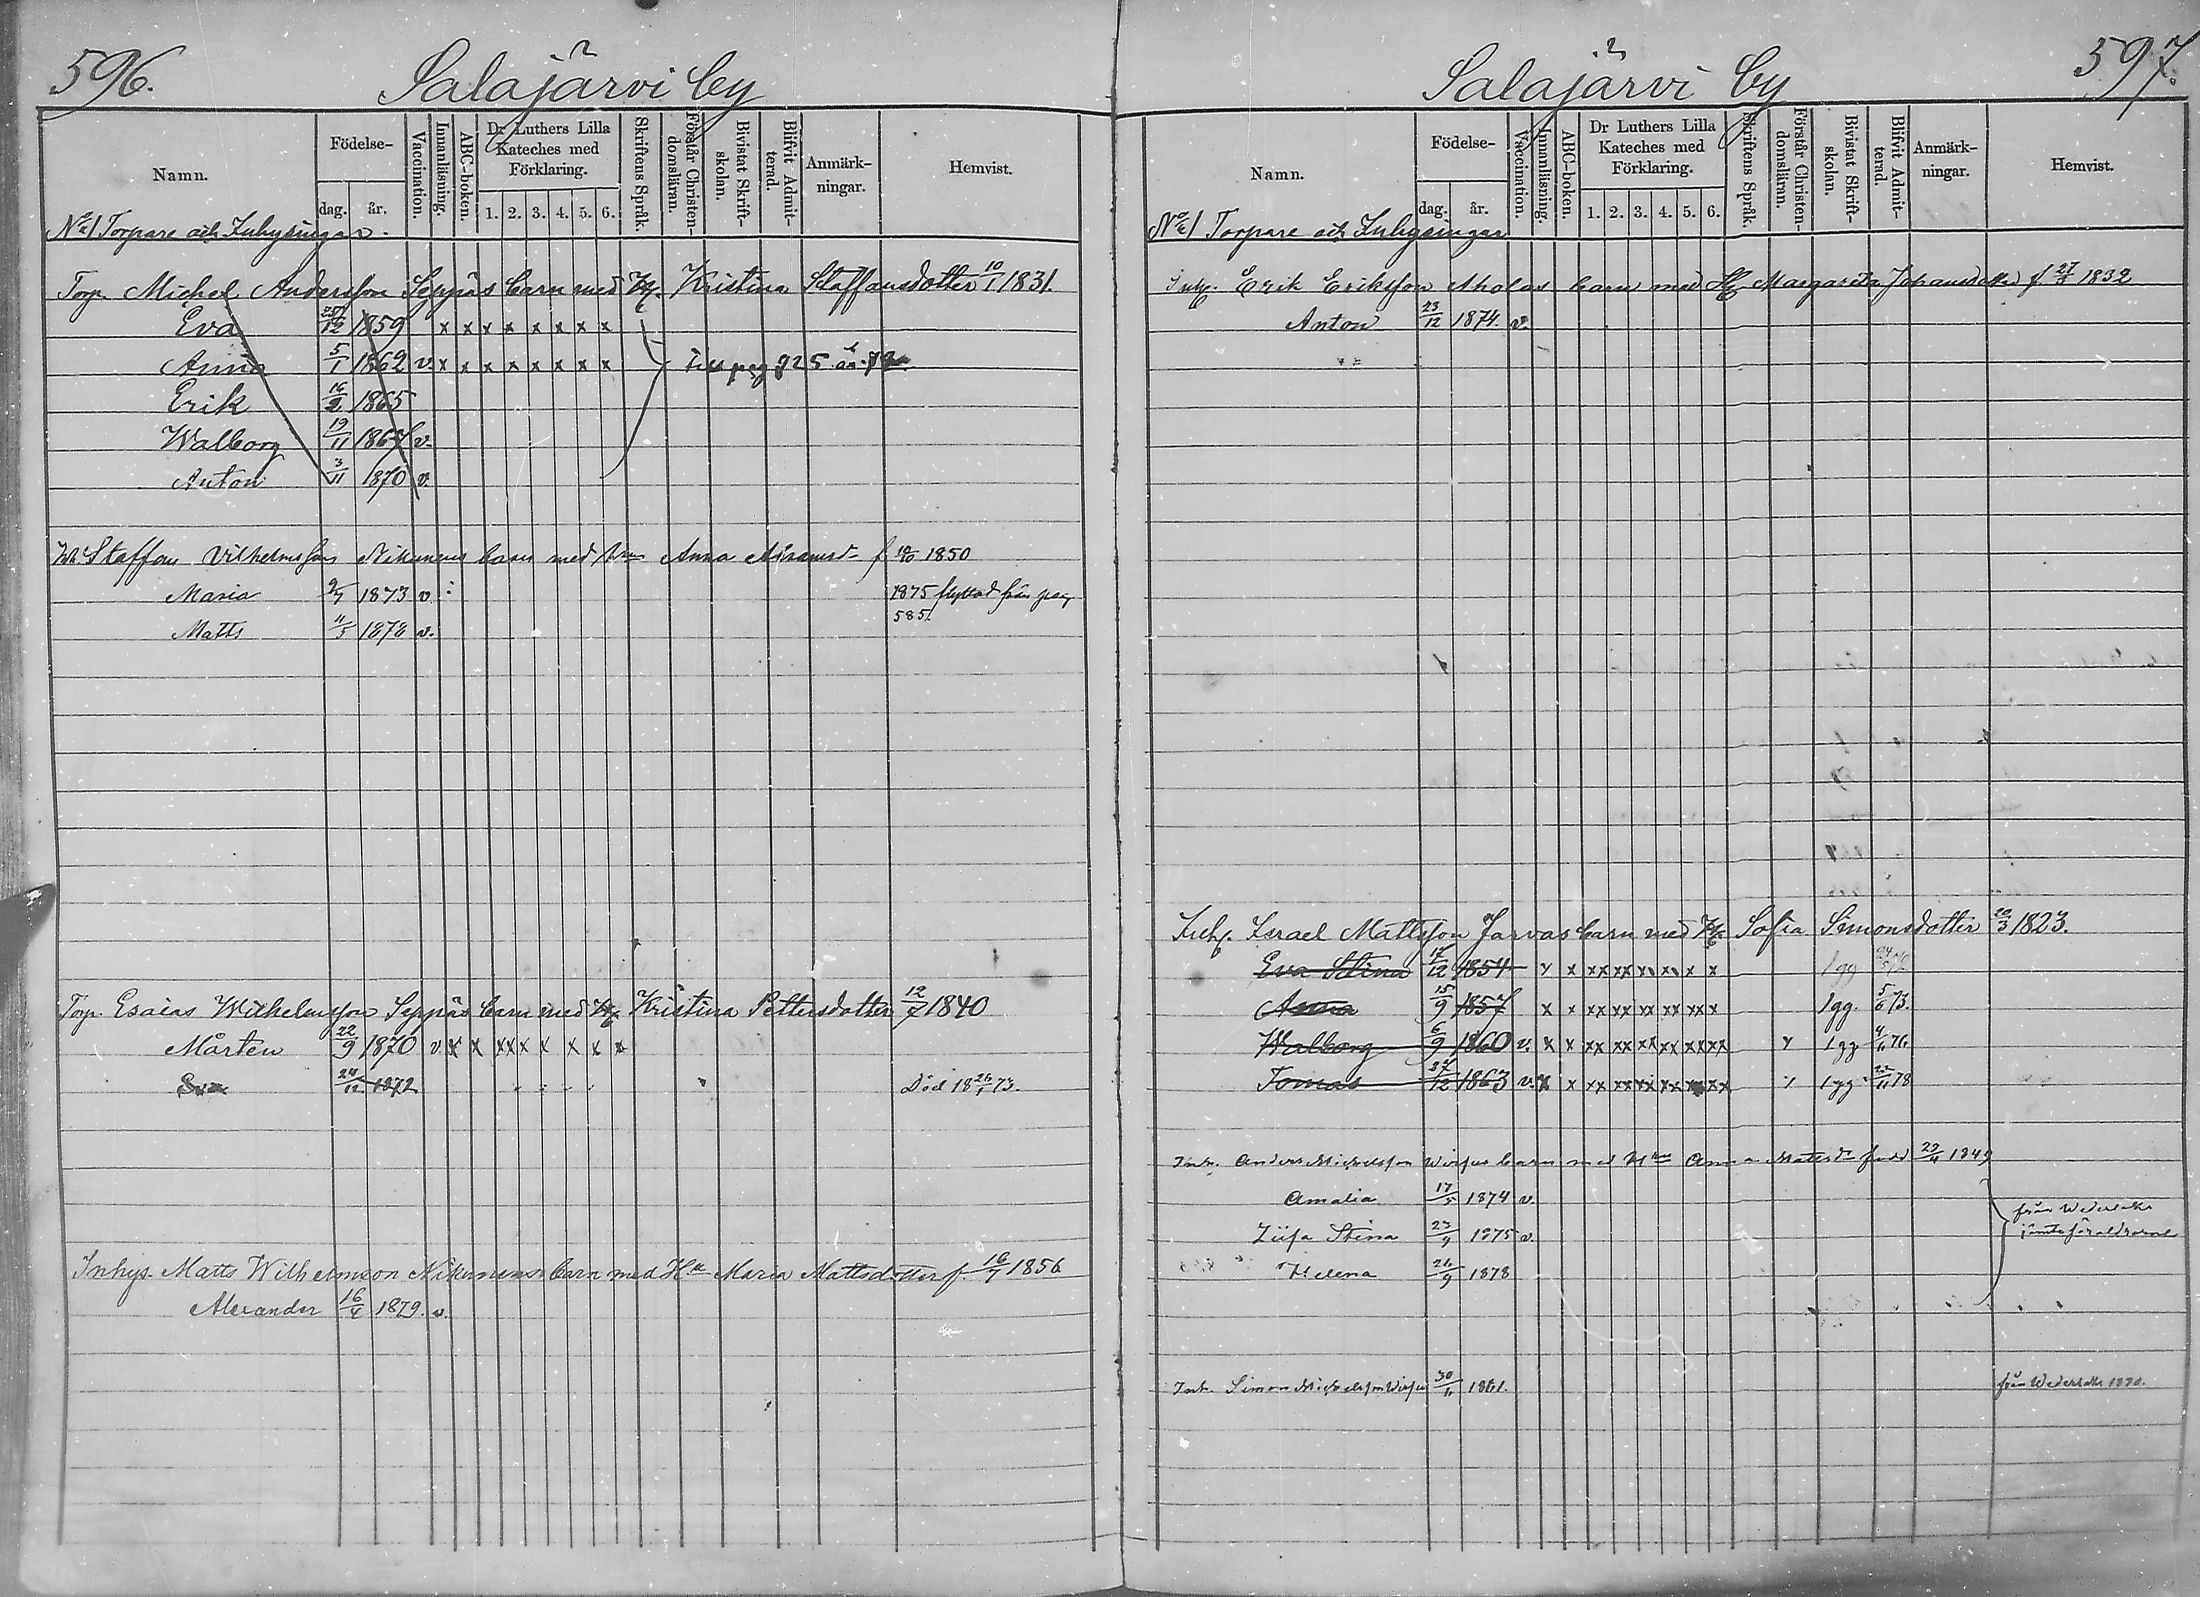 596.
Salajärvi by
Namn.
Födelse-
dag.
år.
Vaccination.
Innanläsning.
ABC-boken.
Dr Luthers Lilla
Kateches med
Förklaring.
1. 2. 3. 4. 5. 6.
Skriftens Språk.
Förstår Christen-
domsläran.
Bivistat Skrift-
skolan.
Blifvit Admit-
terad.
Anmärk-
ningar.
Hemvist.
No 1 Torpare och Inhysingar.
Torp. Michel Andersson Seppäs barn med H. Kristina Staffansdotter 10/1 1831.
Eva 25/12 1859 x x x x x x x x
Anna 5/1 1862 v. x x x x x x x x till pag 925
Erik 16/2 1865
Walborg 19/11 1867 v.
Anton 3/11 1870 v.
Inh Staffan Vilhelmsson Nikunens barn med Anna f 1850
Maria 2/7 1873 v 1875 flyttad från pag
585.
Matts 11/5 1878 v.
Torp. Esaias Wilhelmsson Seppäs barn med H Kristina Pettersdotter 12/7 1840
Mårten 22/9 1870 v x x xx x x x x x
Eva 24/12 1872 Död 18 26/1 73.
Inhys. Matts Wilhelmson Nikunens barn med H Maria Mattsdotter f. 16/7 1856
Alexander 16/4 1879. v.
597.
Salajärvi by
Namn.
Födelse-
dag.
år.
Vaccination.
Innanläsning.
ABC-boken.
Dr Luthers Lilla
Kateches med
Förklaring.
1. 2. 3. 4. 5. 6.
Skriftens Språk.
Förstår Christen-
domsläran.
Bivistat Skrift-
skolan.
Blifvit Admit-
terad.
Anmärk-
ningar.
Hemvist.
No 1 Torpare och Inhysingar
Inh. Erik Eriksson Aholas barn med H Margareta Johansdotter f. 27/3 1832
Anton 23/12 1874. v.
Inh. Israel Mattsson Jarvas barn med H Sofia Simonsdotter 20/3 1823.
Eva Stina 17/12 1854 x x xx xx xx x x 1 gg
Anna 15/9 1857 x x xx xx xx xx x 1 gg. 5/6 73.
Walborg 6/9 1860 v. x x xx xx xx xx xx x 1 gg 4/6 76
Tomas 27/12 1863 v. x x xx xx xx xx xx 1 gg 22/11 78
Inh. Anders Michelsson Wirfus barn med H Anna Matsd född 22/4 1849
Amalia 17/5 1874 v.
från Wederlaks
jämte föräldrarne
Liisa Stina 23/9 1875 v.
Helena 26/9 1878
Inh. Simon Michelsson Wirfus 30/11 1861. från Wederlaks 1880.